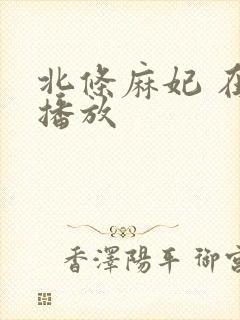 北條麻妃
播放
香澤陽平 御